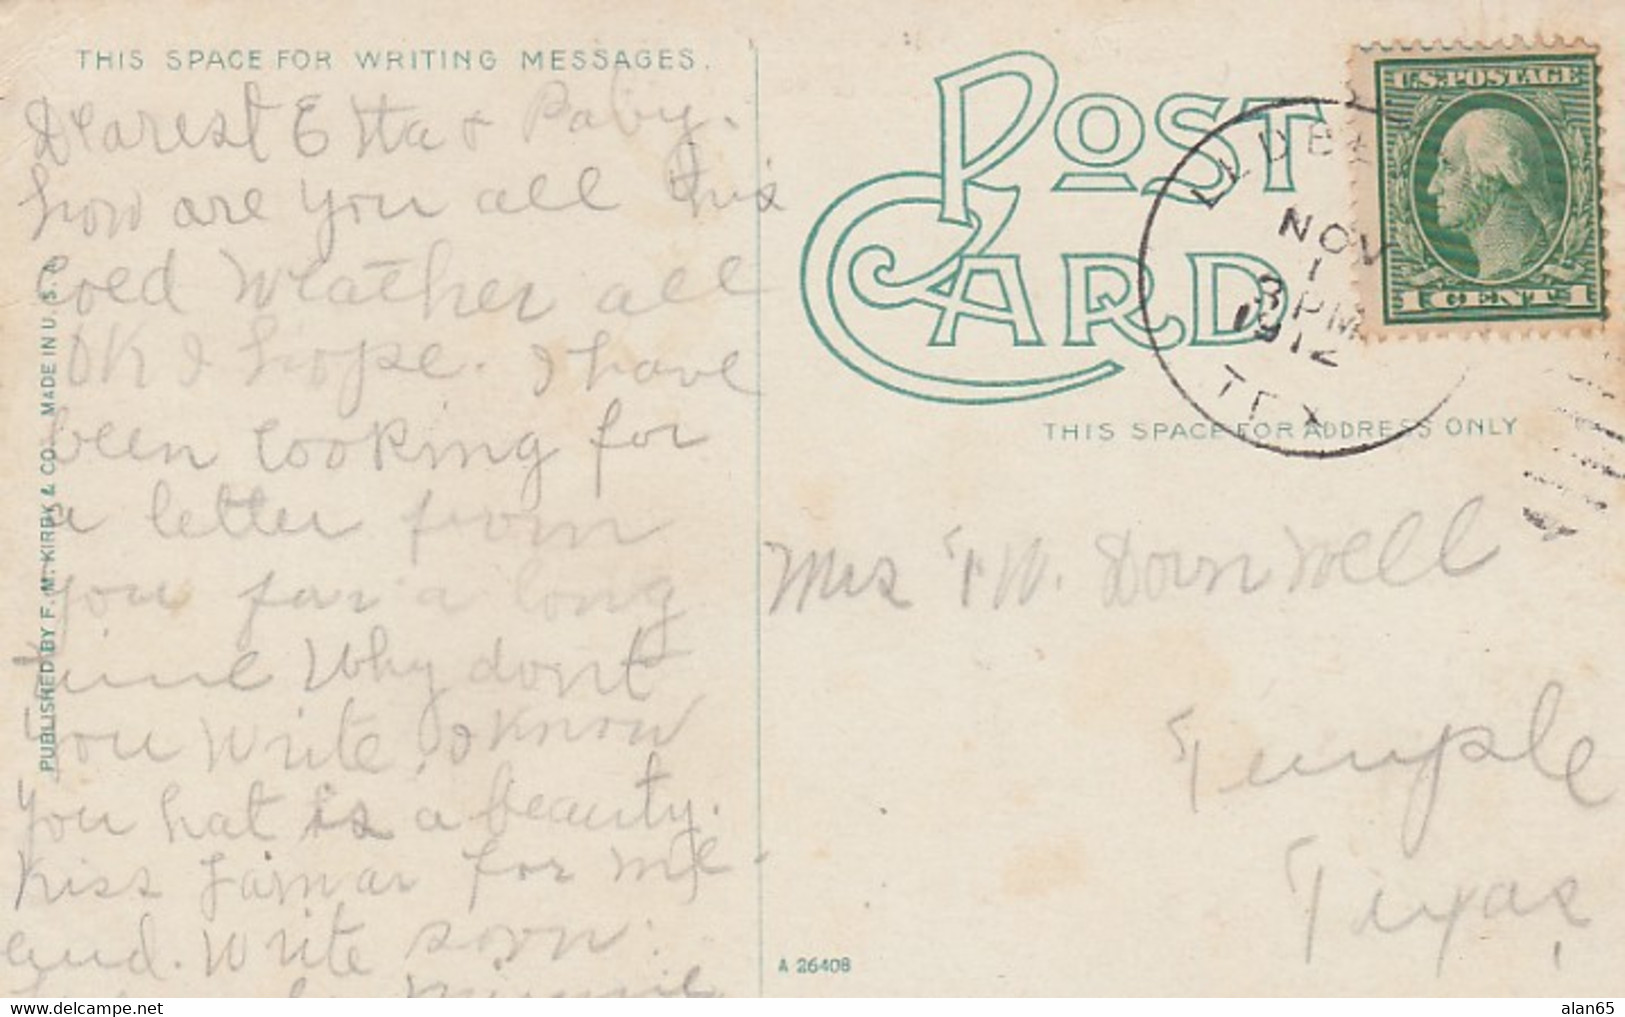 THIS SPACE FOR WRITING MESSAGES.
Dearest Etta & Baby.
how are you all this
cold weather all
OK I hope. I have
been looking for
a letter from
you for a long
time Why dont
you write. I know
you hat is a beauty.
Kiss Lamar for me
and. write soon.
Minnie
PUBLISHED BY F. M. KIRBY & CO. MADE IN U. S. A.
POST CARD
THIS SPACE FOR ADDRESS ONLY
NOV
1
8 PM
1912
TEX
U.S. POSTAGE
1 CENT 1
Mrs T W. Dorn Well
Temple
Texas
A 26408
alan65